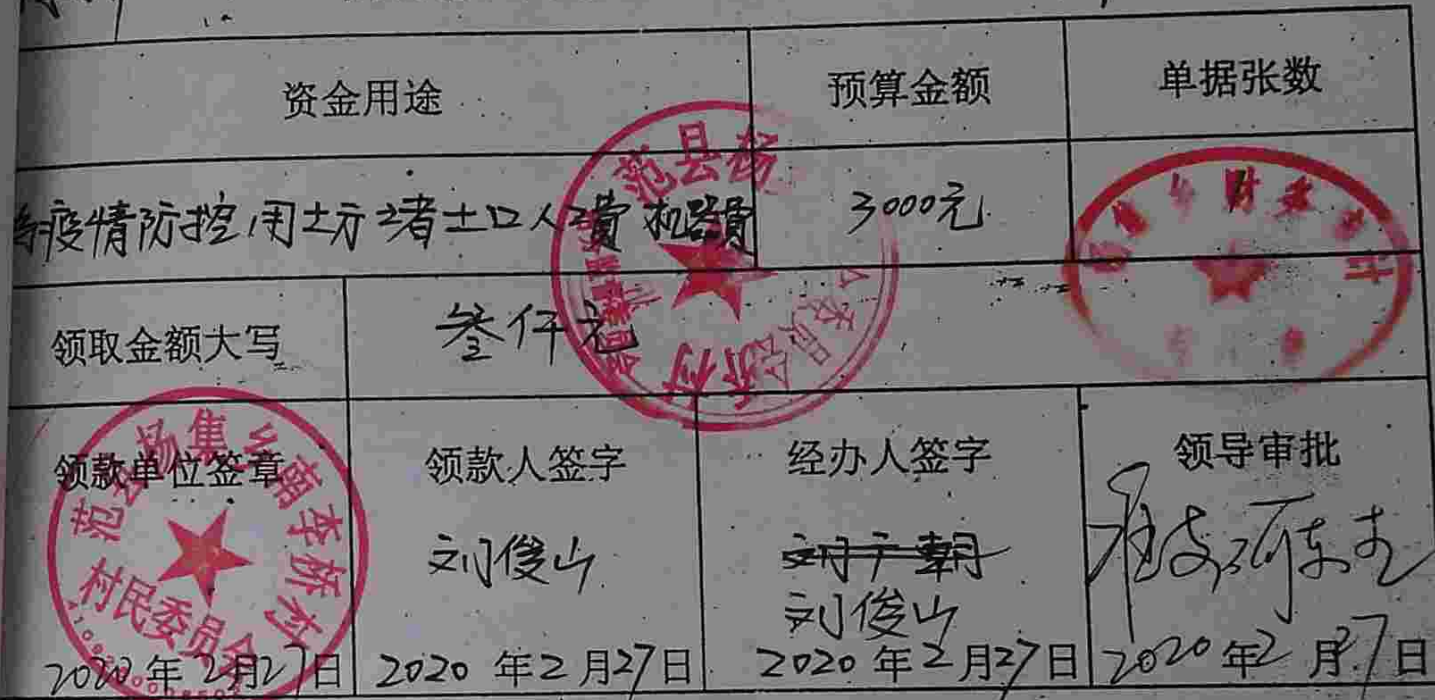 资金用途 预算金额 单据张数
疫情防控用土方堵土口人工费 机器费 3000元
领取金额大写 叁仟元
范县杨
村
领款单位签章 领款人签字 经办人签字 领导审批
范县杨集乡南李桥村
村民委员会
刘俊山
刘俊山
2020年2月27日 2020年2月27日 2020年2月27日 2020年2月27日